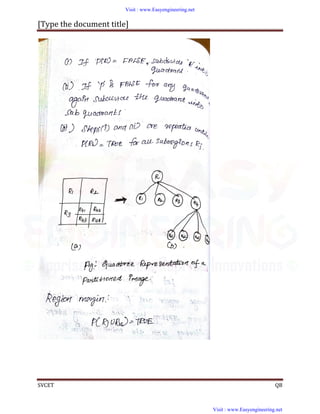 Visit : www.Easyengineering.net
[Type the document title]
(i) If P(R) = FALSE, subdivide 'R' into
quadrant.
(ii) If 'P' is FALSE for any quadrant
again subdivide the quadrant into
sub quadrants
(iii) Steps(i) and (ii) are repeated until
P(Ri) = TRUE for all subregions Ri.
R
R1 R2
R1 R2 R3 R4
R3 R41 R42
R43 R44
R41 R42 R43 R44
(a) (b)
Fig: Quadtree Representation of a
Partitioned Image
Region merging:
P(Rj U Rk) = TRUE
SVCET QB
Visit : www.Easyengineering.net